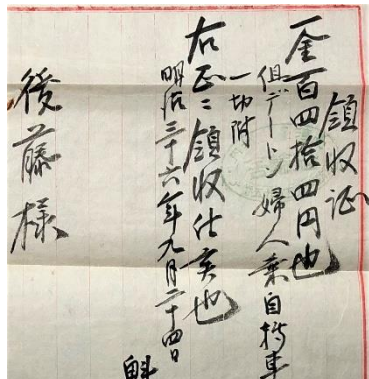 領収证
一金百四拾四円也
但デートン婦人乗自轉車
一切附
右正ニ領収仕候也
明治三十六年九月二十四日
魁
後藤様